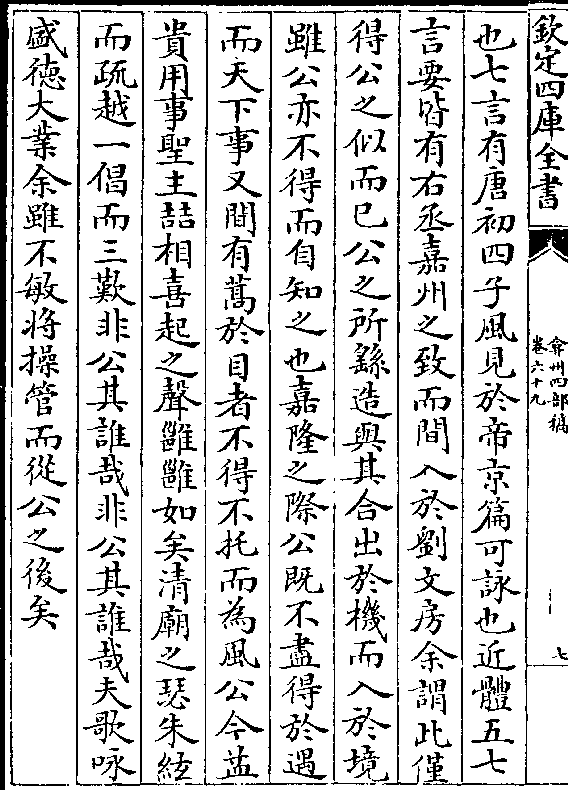 欽定四庫全書
弇州四部稿
卷六十九
七
也七言有唐初四子風見於帝京篇可詠也近體五七
言要皆有右丞嘉州之致而間入於劉文房余謂此僅
得公之似而已公之所繇造與其合出於機而入於境
雖公亦不得而自知之也嘉隆之際公既不盡得於遇
而天下事又間有蒿於目者不得不托而為風公今益
貴用事聖主喆相喜起之聲雝雝如矣清廟之瑟朱絃
而疏越一倡而三歎非公其誰哉非公其誰哉夫歌咏
盛德大業余雖不敏將操管而從公之後矣